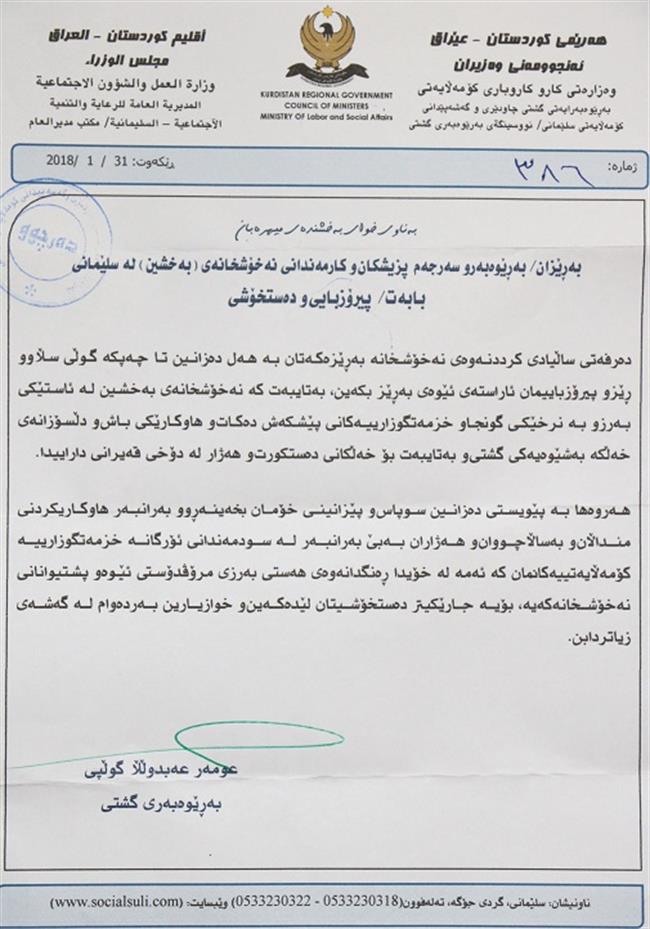 هەرێمی کوردستان - عێراق
ئەنجوومەنی وەزیران
وەزارەتی کارو کاروباری کۆمەڵایەتی
بەڕێوەبەرایەتی گشتی چاودێری و گەشەپێدانی
کۆمەڵایەتی سلێمانی/ نووسینگەی بەڕێوەبەری گشتی
KURDISTAN REGIONAL GOVERNMENT
COUNCIL OF MINISTERS
MINISTRY OF Labor and Social Affairs
أقليم كوردستان - العراق
مجلس الوزراء
وزارة العمل والشؤون الاجتماعية
المديرية العامة للرعاية والتنمية
الأجتماعية - السليمانية/ مكتب مديرالعام
ژمارە: ٣٨٦
ڕێکەوت: 31 / 1 /2018
دەرچوو
بەناوی خوای بەخشندەی میهرەبان
بەڕێزان/ بەڕێوەبەرو سەرجەم پزیشکان و کارمەندانی نەخۆشخانەی (بەخشین) لە سلێمانی
بابەت/ پیرۆزبایی و دەستخۆشی
دەرفەتی ساڵیادی کرددنەوەی نەخۆشخانە بەڕێزەکەتان بە هەل دەزانین تا چەپکە گوڵی سڵاوو
ڕێزو پیرۆزباییمان ئاراستەی ئێوەی بەڕێز بکەین، بەتایبەت کە نەخۆشخانەی بەخشین لە ئاستێکی
بەرزو بە نرخێکی گونجاو خزمەتگوزارییەکانی پێشکەش دەکات و هاوکارێکی باش و دڵسۆزانەی
خەڵکە بەشێوەیەکی گشتی و بەتایبەت بۆ خەڵکانی دەستکورت و هەژار لە دۆخی قەیرانی داراییدا.
هەروەها بە پێویستی دەزانین سوپاس و پێزانینی خۆمان بخەینەڕوو بەرانبەر هاوکاریکردنی
منداڵان و بەساڵاچووان و هەژاران بەبێ بەرانبەر لە سودمەندانی ئۆرگانە خزمەتگوزارییە
کۆمەڵایەتییەکانمان کە ئەمە لە خۆیدا ڕەنگدانەوەی هەستی بەرزی مرۆڤدۆستی ئێوەو پشتیوانانی
نەخۆشخانەکەیە، بۆیە جارێکیتر دەستخۆشیتان لێدەکەین و خوازیارین بەردەوام لە گەشەی
زیاتردابن.
عومەر عەبدوڵڵا گوڵپی
بەڕێوەبەری گشتی
ناونیشان: سلێمانی، گردی جۆگە، تەلەفوون(0533230318 - 0533230322) وێبسایت: (www.socialsuli.com)